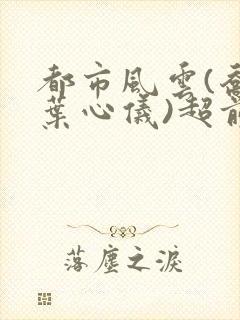 都市風雲(喬
葉心儀)超前
落塵之淚